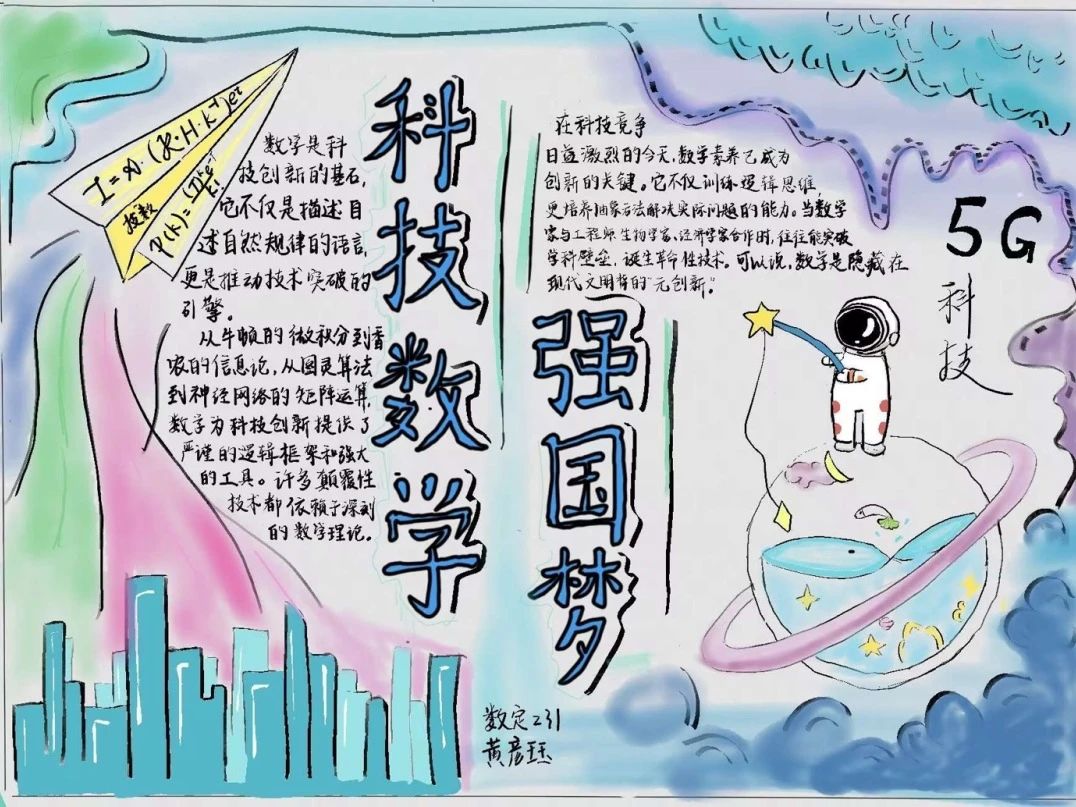 科技数学
强国梦
数学是科
技创新的基石,
它不仅是描述自
述自然规律的语言,
更是推动技术突破的
引擎。
从牛顿的微积分到香
农的信息论,从图灵算法
到神经网络的矩阵运算,
数学为科技创新提供了
严谨的逻辑框架和强大
的工具。许多颠覆性
技术都依赖于深刻
的数学理论。
在科技竞争
日益激烈的今天,数学素养已成为
创新的关键。它不仅训练逻辑思维,
更培养抽象方法解决实际问题的能力。当数学
家与工程师、生物学家、经济学家合作时,往往能突破
学科壁垒,诞生革命性技术。可以说,数学是隐藏在
现代文明背的“元创新”。
5G
科技
技数
数定231
黄彦珏